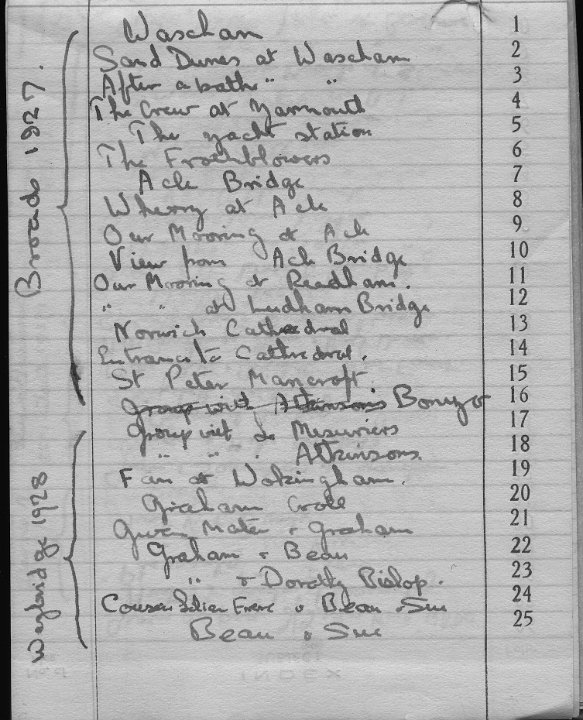 Broads 1927.
Waxham 1
Sand Dunes at Waxham 2
After a bathe " " 3
The Crew at Yarmouth 4
The yacht station 5
The Frothblowers 6
Acle Bridge 7
Wherry at Acle 8
Our Mooring at Acle 9
View from Acle Bridge 10
Our Mooring at Reedham. 11
" " at Ludham Bridge 12
Norwich Cathedral 13
Entrance to Cathedral. 14
St Peter Mancroft. 15
Group with Atkinsons Bonzo 16
Weybridge 1928
Group with Le Mesuriers 17
" " " Atkinsons 18
Fam at Wokingham. 19
Graham Croll 20
Gwen, Mater & Graham 21
Graham & Beau 22
" & Dorothy Bishop. 23
Cousin Frere & Beau & Sue 24
Beau & Sue 25